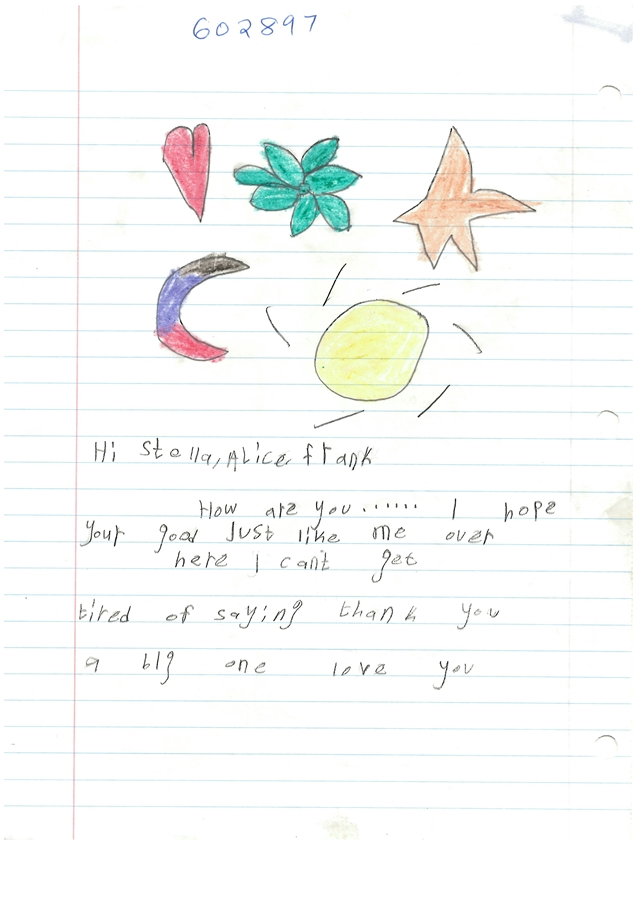 602897
Hi Stella, Alice, frank
How are you....... I hope
your good Just like me over
here I can't get
tired of saying thank you
a big one love you